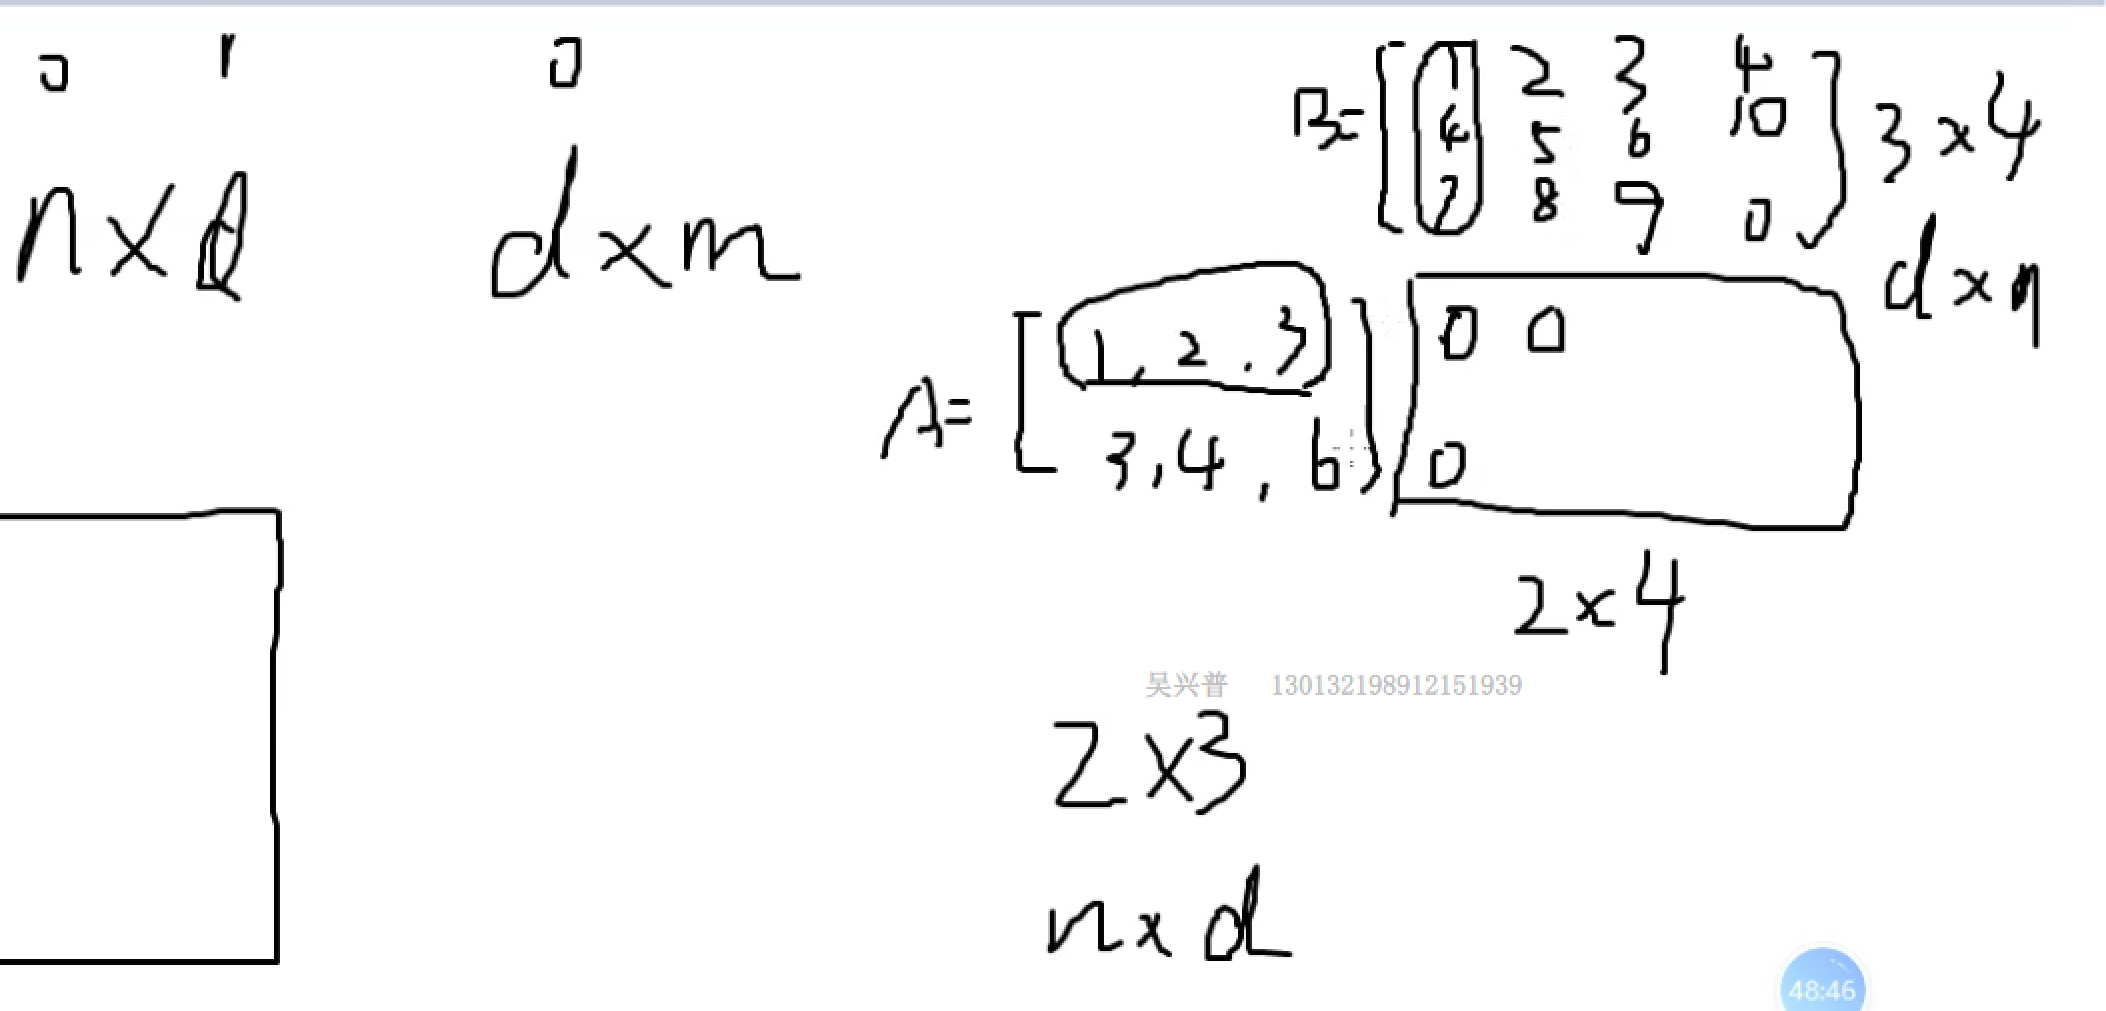 0 1 0
n×d d×m
B= [ 1 2 3 4
4 5 6 10
7 8 9 0 ] 3×4
d×m
A= [ 1, 2, 3
3, 4, 6 ]
0 0
0
2×4
吴兴普 130132198912151939
2×3
n×d
48:46